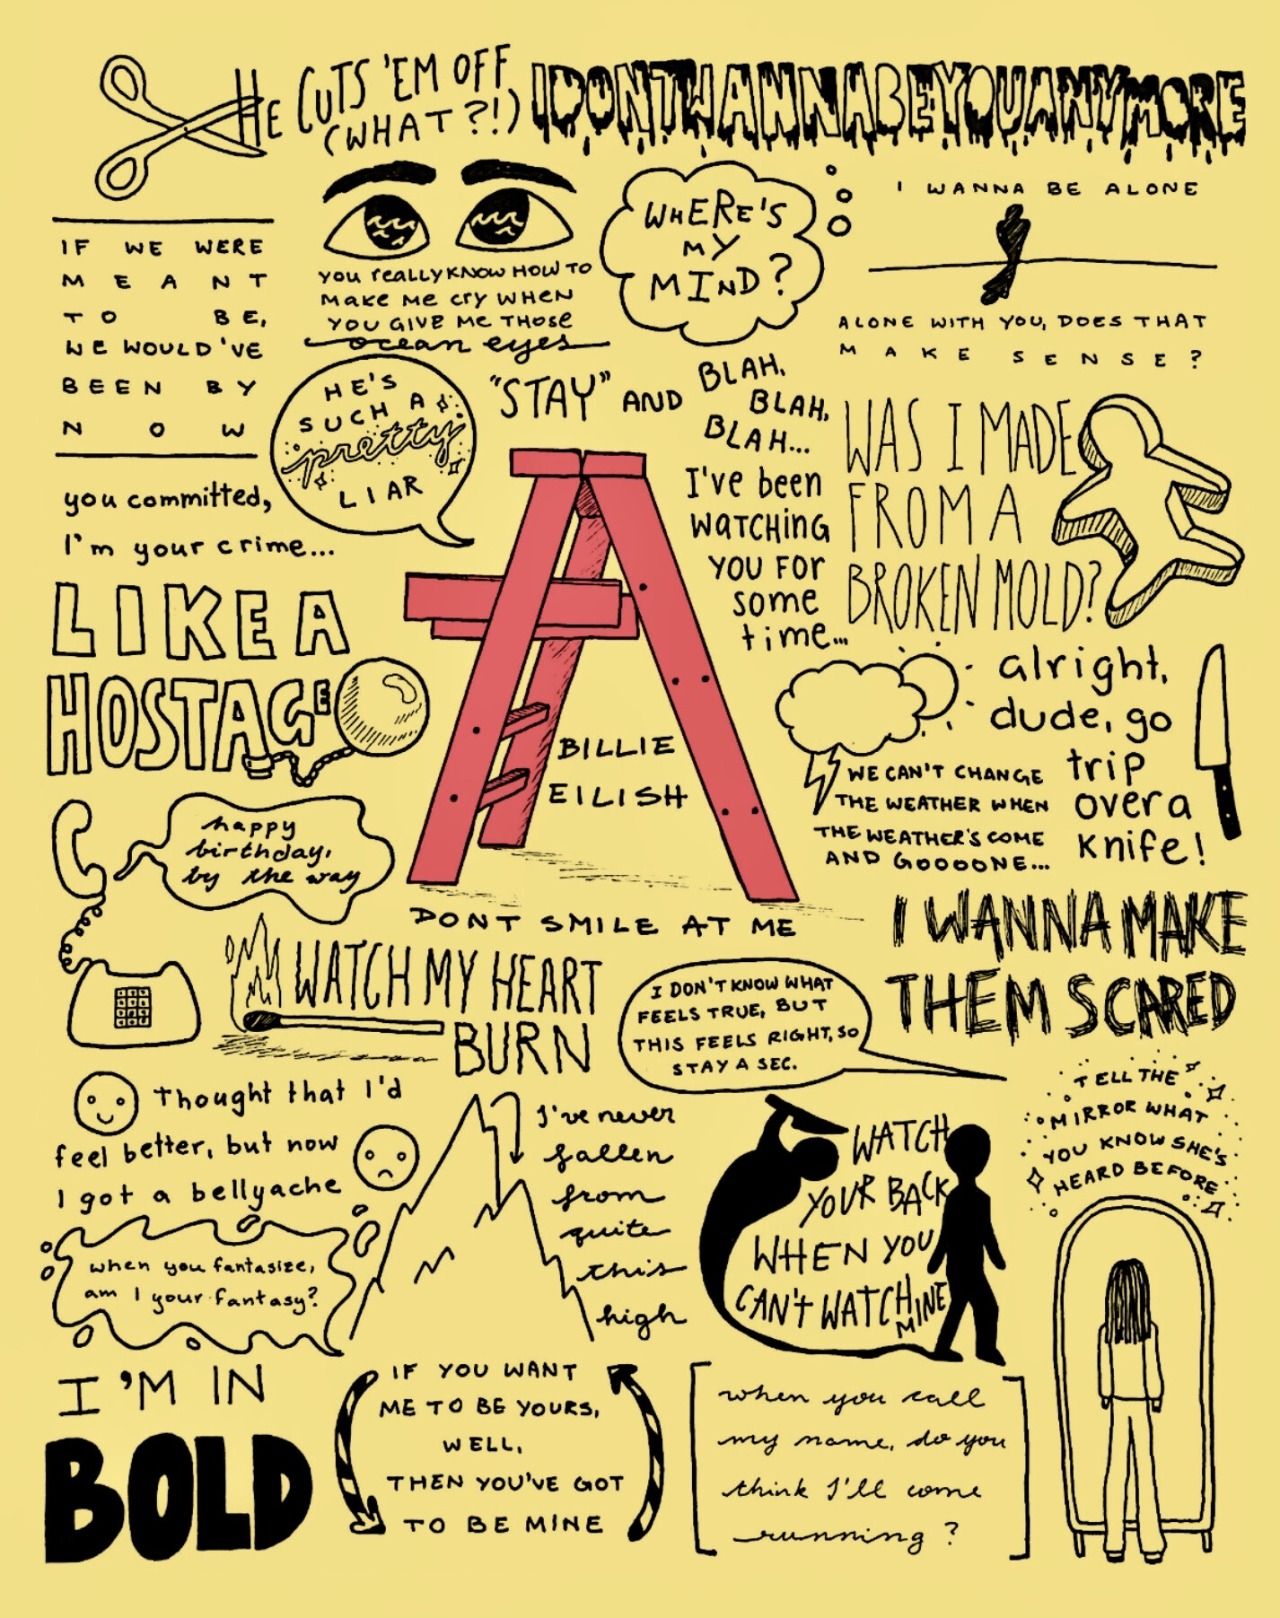 HE CUTS 'EM OFF
(WHAT?!)
IDONTWANNABEYOUANYMORE
IF WE WERE
MEANT
TO BE,
WE WOULD'VE
BEEN BY
NOW
you really know how to
make me cry when
you give me those
ocean eyes
WHERE'S
MY
MIND?
I WANNA BE ALONE
ALONE WITH YOU, DOES THAT
MAKE SENSE?
HE'S
SUCH A
pretty
LIAR
"STAY" AND BLAH,
BLAH,
BLAH...
WAS I MADE
FROM A
BROKEN MOLD?
you committed,
I'm your crime...
I've been
watching
you for
some
time...
LIKE A
HOSTAGE
alright,
dude, go
trip
over a
knife!
BILLIE
EILISH
WE CAN'T CHANGE
THE WEATHER WHEN
THE WEATHER'S COME
AND GOOOONE...
happy
birthday,
by the way
DONT SMILE AT ME
I WANNA MAKE
THEM SCARED
WATCH MY HEART
BURN
I DON'T KNOW WHAT
FEELS TRUE, BUT
THIS FEELS RIGHT, SO
STAY A SEC.
Thought that I'd
feel better, but now
I got a bellyache
I've never
fallen
from
quite
this
high
WATCH
YOUR BACK
WHEN YOU
CAN'T WATCH
MINE
TELL THE
MIRROR WHAT
YOU KNOW SHE'S
HEARD BEFORE
when you fantasize,
am I your fantasy?
I'M IN
BOLD
IF YOU WANT
ME TO BE YOURS,
WELL,
THEN YOU'VE GOT
TO BE MINE
when you call
my name, do you
think I'll come
running?